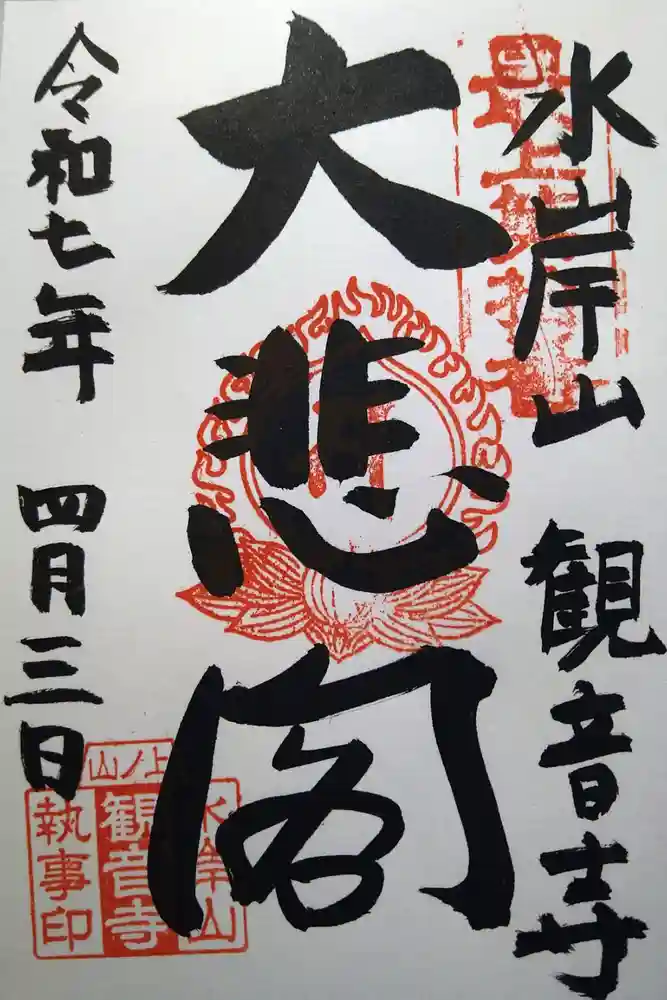 水岸山 観音寺
大悲閣
令和七年 四月三日
山ノ上
水岸山
観音寺
執事印